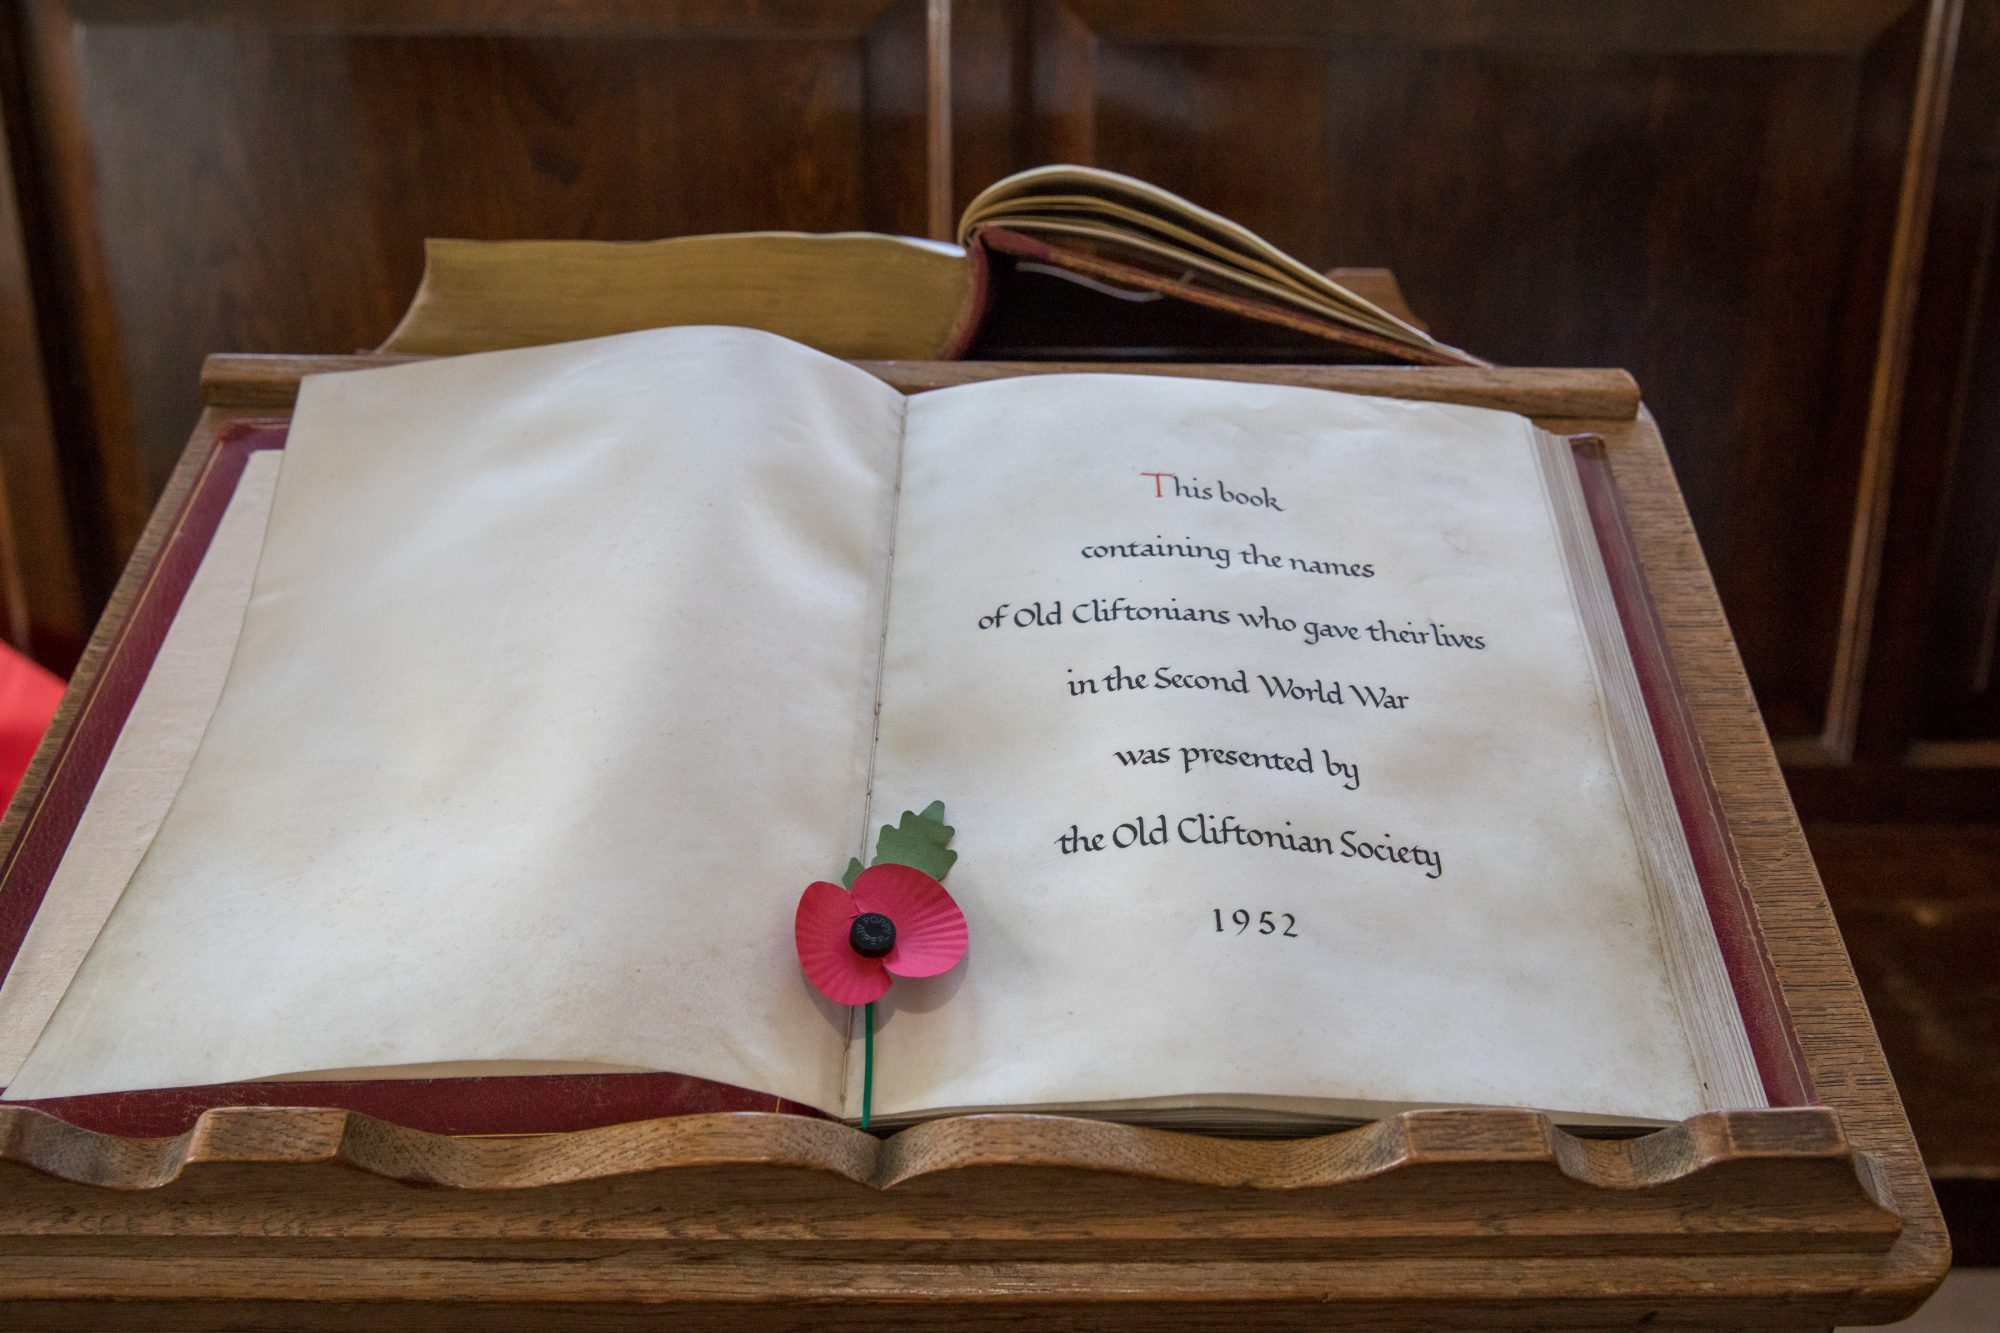 This book
containing the names
of Old Cliftonians who gave their lives
in the Second World War
was presented by
the Old Cliftonian Society
1952